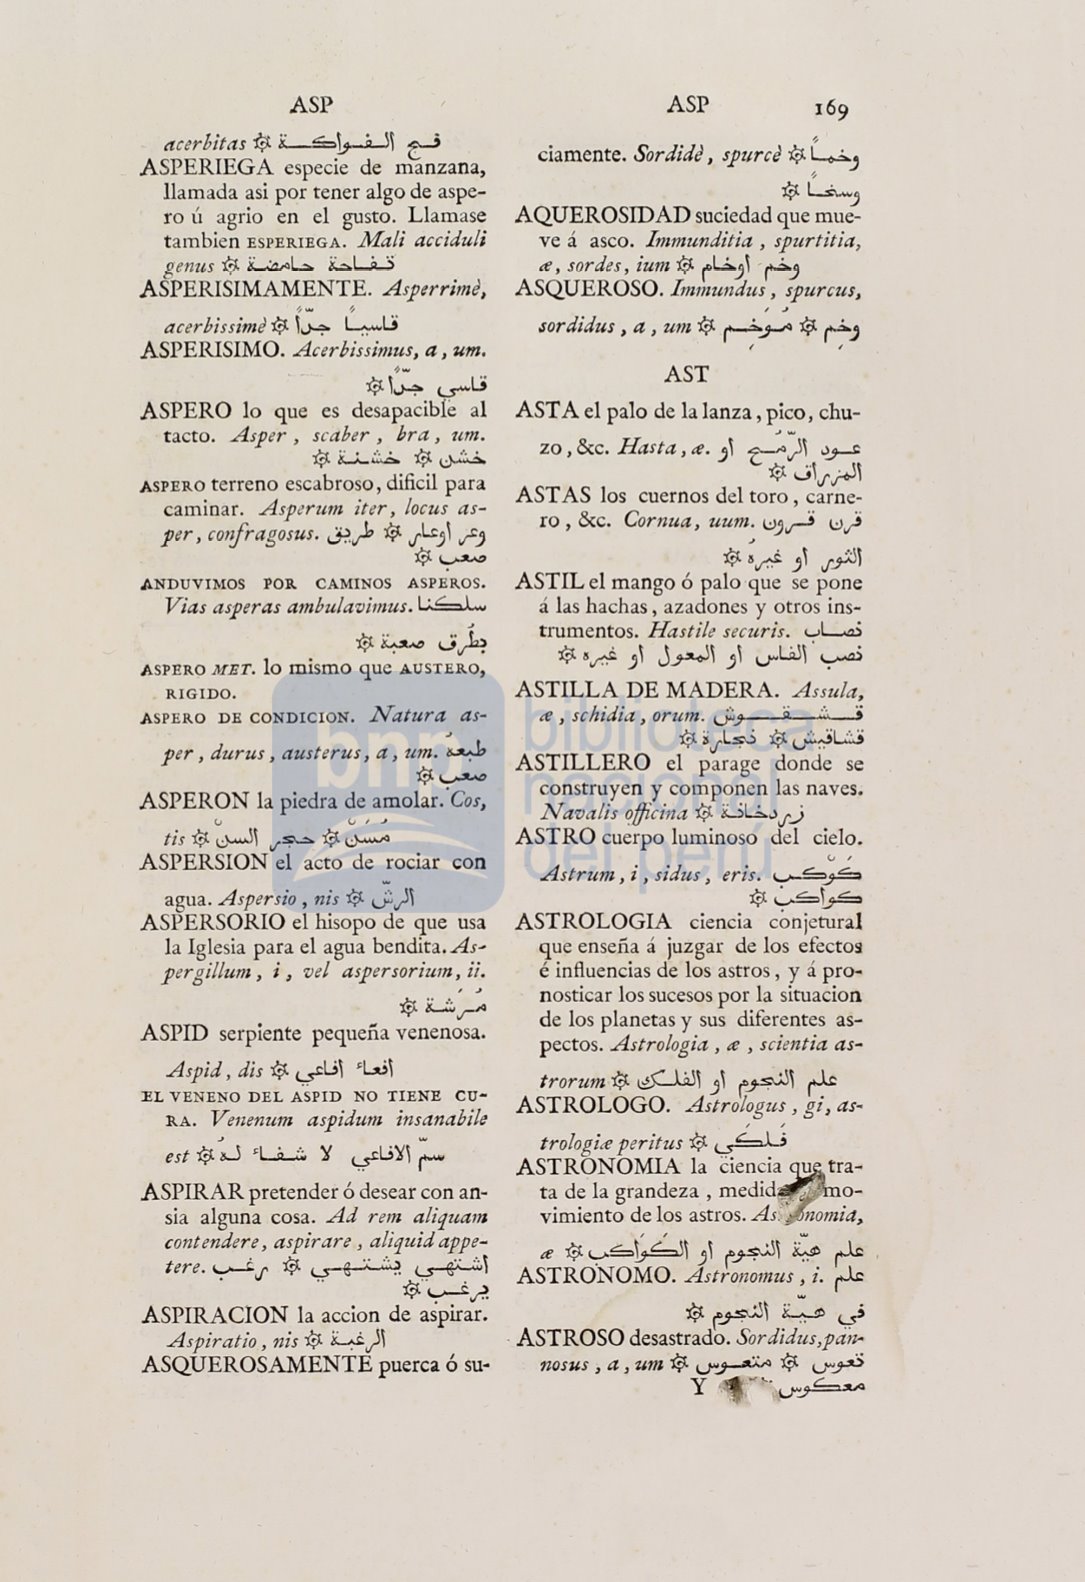 ASP
acerbitas ۞ فج الفواكة
ASPERIEGA especie de manzana,
llamada asi por tener algo de aspe-
ro ú agrio en el gusto. Llamase
tambien ESPERIEGA. Mali acciduli
genus ۞ تفاحة حامضة
ASPERISIMAMENTE. Asperrimè,
acerbissimè ۞ قاسياً جدّاً
ASPERISIMO. Acerbissimus, a, um.
قاسي جدّاً ۞
ASPERO lo que es desapacible al
tacto. Asper, scaber, bra, um.
خشن ۞ خشنة ۞
ASPERO terreno escabroso, dificil para
caminar. Asperum iter, locus as-
per, confragosus. وعر اوعار ۞ طريق
صعب ۞
ANDUVIMOS POR CAMINOS ASPEROS.
Vias asperas ambulavimus. سلكنا
بطُرق صعبة ۞
ASPERO MET. lo mismo que AUSTERO,
RIGIDO.
ASPERO DE CONDICION. Natura as-
per, durus, austerus, a, um. طبعهُ
صعب ۞
ASPERON la piedra de amolar. Cos,
tis ۞ مُسَنّ ۞ حجر السنّ
ASPERSION el acto de rociar con
agua. Aspersio, nis ۞ الرشّ
ASPERSORIO el hisopo de que usa
la Iglesia para el agua bendita. As-
pergillum, i, vel aspersorium, ii.
مُرَشة ۞
ASPID serpiente pequeña venenosa.
Aspid, dis ۞ أفعاء أفاعي
EL VENENO DEL ASPID NO TIENE CU-
RA. Venenum aspidum insanabile
est ۞ سمّ الافاعي لا شفاء لهُ
ASPIRAR pretender ó desear con an-
sia alguna cosa. Ad rem aliquam
contendere, aspirare, aliquid appe-
tere. اشتهي يشتهي ۞ رغب
يرغب ۞
ASPIRACION la accion de aspirar.
Aspiratio, nis ۞ الرغبة
ASQUEROSAMENTE puerca ó su-
ASP 169
ciamente. Sordidè, spurcè ۞ وخماً
وسخاً ۞
AQUEROSIDAD suciedad que mue-
ve á asco. Immunditia, spurtitia,
æ, sordes, ium ۞ وخم أوخام
ASQUEROSO. Immundus, spurcus,
sordidus, a, um ۞ وخِم ۞ مُوَخِم
AST
ASTA el palo de la lanza, pico, chu-
zo, &c. Hasta, æ. عود الرّمُح او
المزراق ۞
ASTAS los cuernos del toro, carne-
ro, &c. Cornua, uum. قرن قرون
الثور او غيرهُ ۞
ASTIL el mango ó palo que se pone
á las hachas, azadones y otros ins-
trumentos. Hastile securis. نصاب
نصب الفاس او المعول او غيره ۞
ASTILLA DE MADERA. Assula,
æ, schidia, orum. قشقوش
قشاقيش ۞ نجارة ۞
ASTILLERO el parage donde se
construyen y componen las naves.
Navalis officina ۞ زردخانة
ASTRO cuerpo luminoso del cielo.
Astrum, i, sidus, eris. كَوْكب
كواكب ۞
ASTROLOGIA ciencia conjetural
que enseña á juzgar de los efectos
é influencias de los astros, y á pro-
nosticar los sucesos por la situacion
de los planetas y sus diferentes as-
pectos. Astrologia, æ, scientia as-
trorum ۞ علم النجوم او الفلك
ASTROLOGO. Astrologus, gi, as-
trologiæ peritus ۞ فَلَكي
ASTRONOMIA la ciencia que tra-
ta de la grandeza, mo-
vimiento de los astros.
æ ۞ علم هيّة النجوم او الكَوَاكب
ASTRONOMO. Astronomus, i. علم
في هيّة النجوم ۞
ASTROSO desastrado. Sordidus, pan-
nosus, a, um ۞ تعوس ۞ متعوس
معكوس Y
bnp biblioteca
nacional
del perú